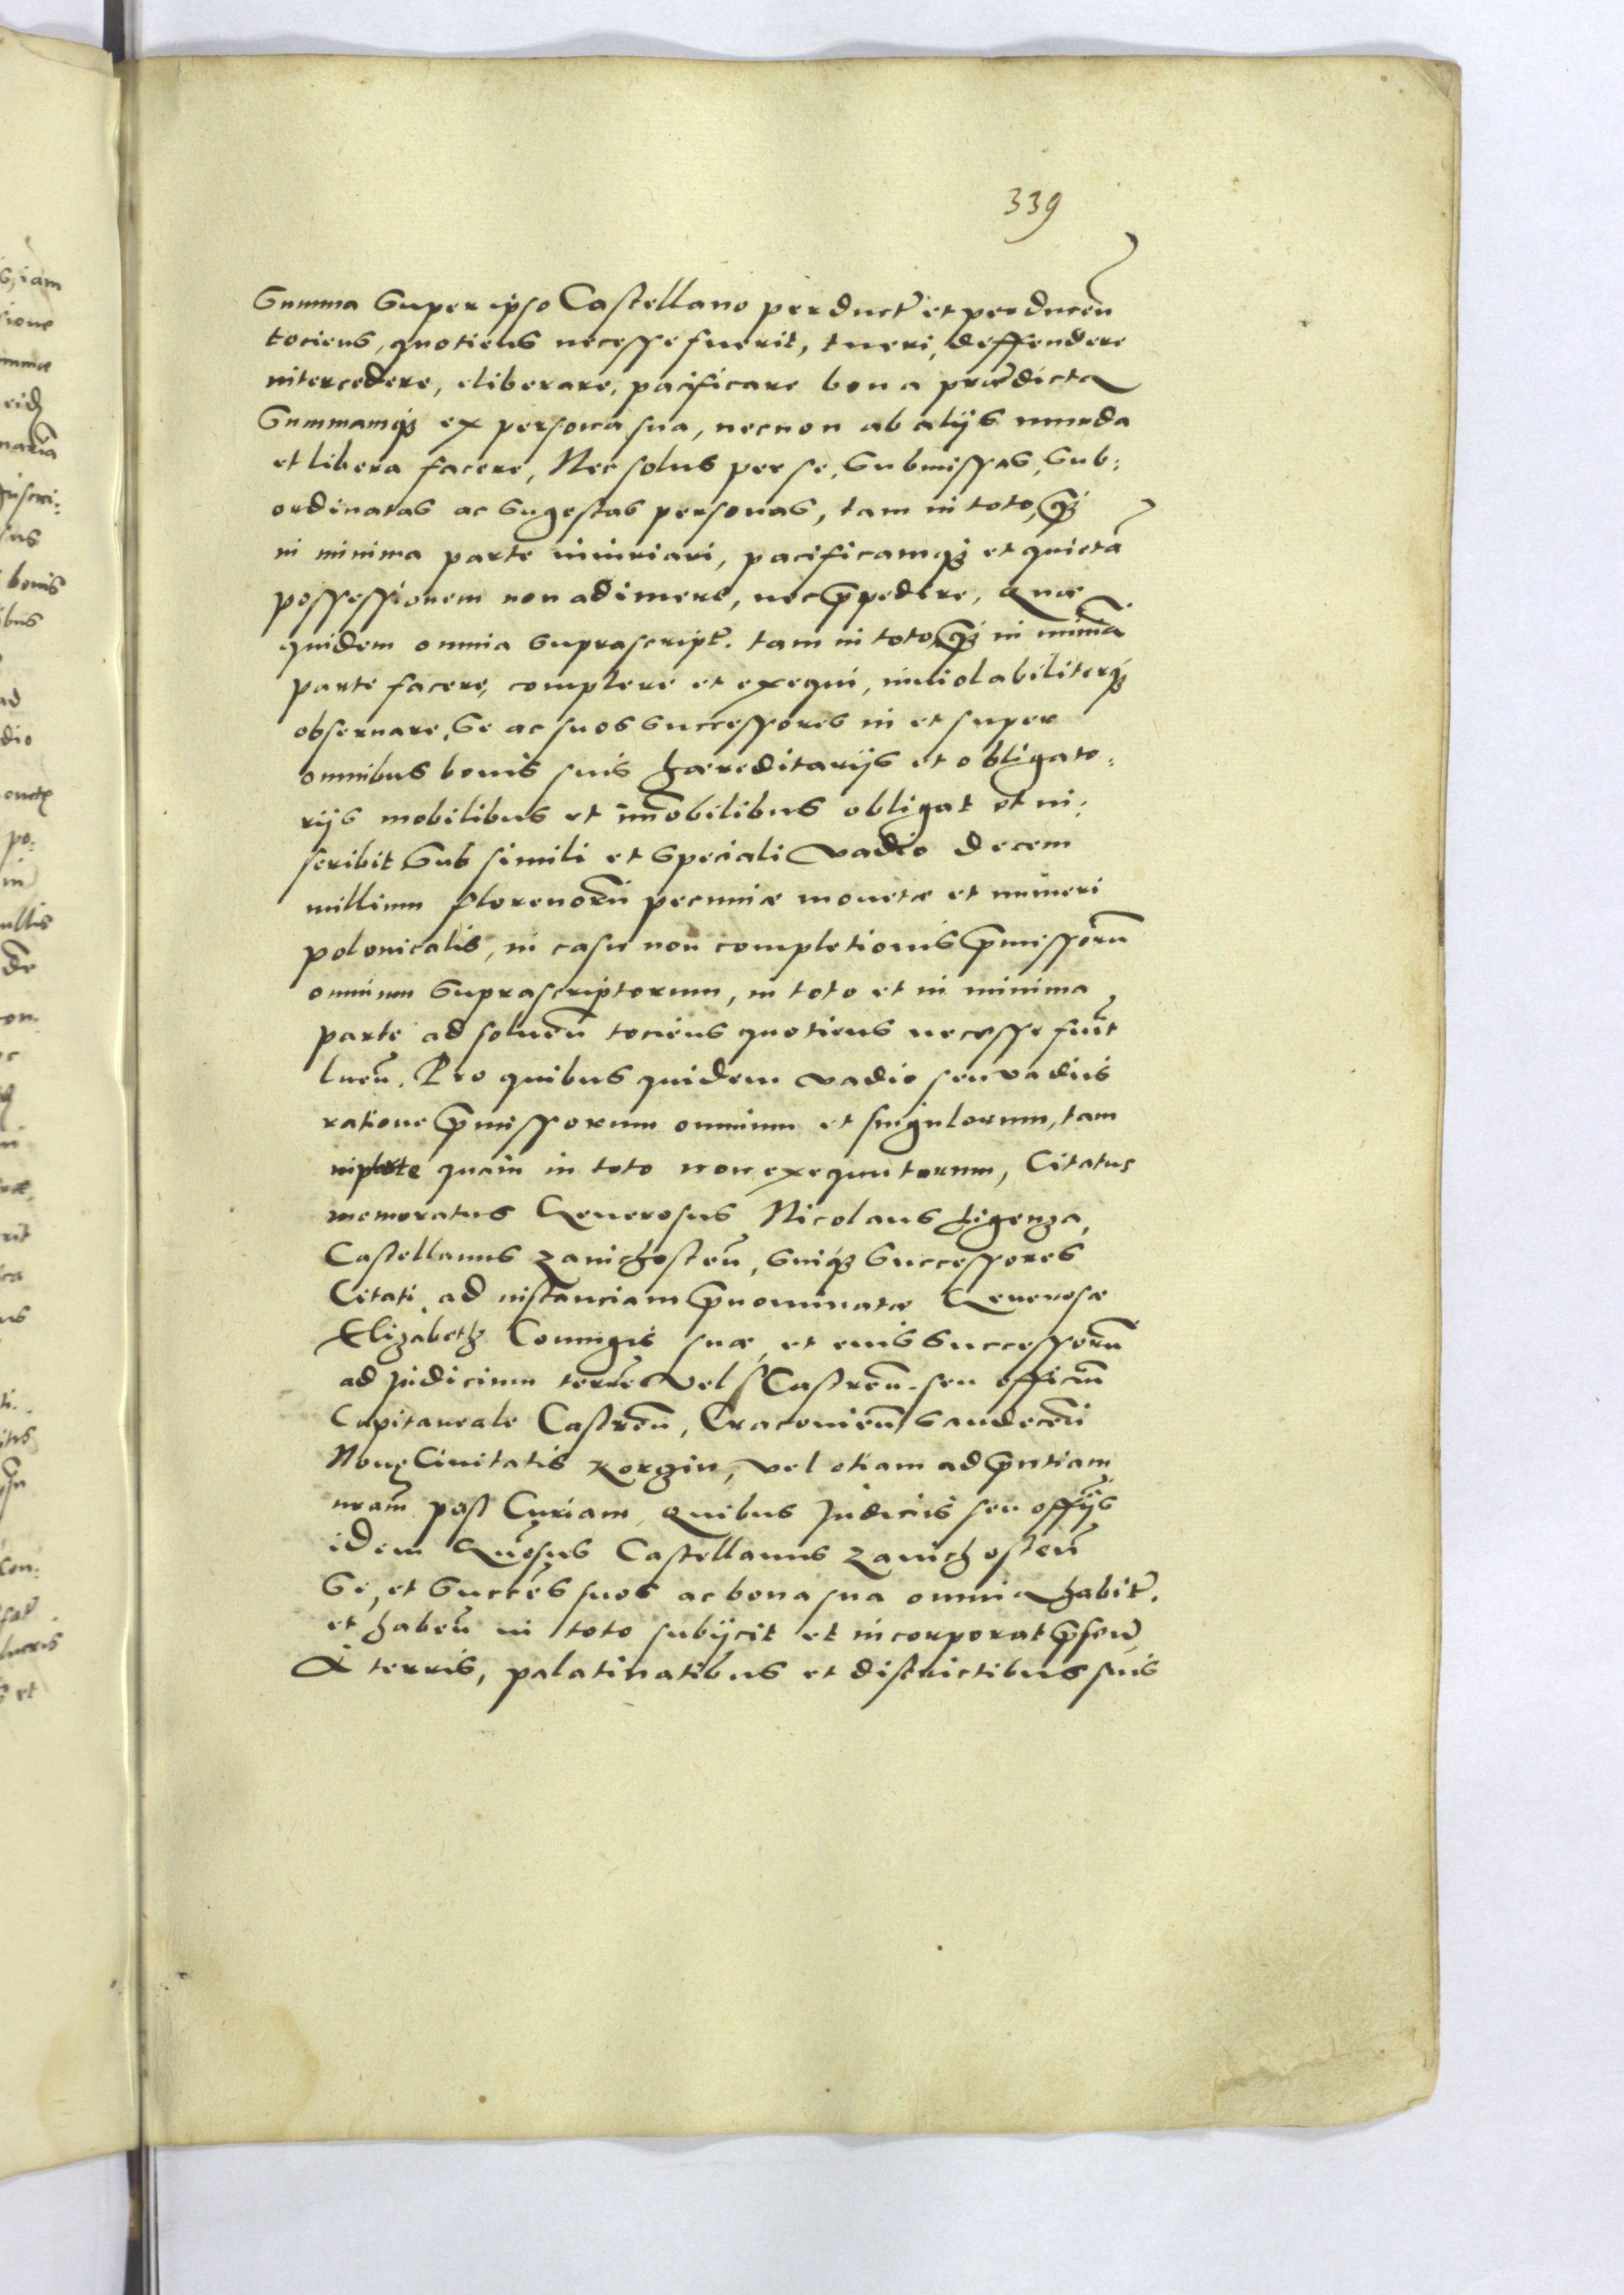 339
Summa super ipso Castellano perduct̃ et perduceñ
tociens, quotiens necesse fuerit, tueri, deffendere
intercedere, eliberare, pacificare bona prædicta
Summamq̃ ex persona sua, necnon ab alijs munda
et libera facere, Nec solus per se, Submissas, Sub:
ordinatas ac sugestas personas, tam in toto, q̃
in minima parte iniuriari, pacificamq̃ et quietã
possessionem non adimere, nec p̃pedire, Quæ
quidem omnia suprascript̃. tam in toto, q̃ in minĩa
parte facere, complere et exequi, inuiolabiliterq̃
obseruare, Se ac suos successores in et super
omnibus bonis suis hæreditarijs et obligato:
rijs mobilibus et im̃obilibus obligat et in:
scribit Sub simili et speciali vadio decem
millium florenorũ pecuniæ monetæ et numeri
polonicalis, in casu non completionis p̃missorũ
omnium suprascriptorum, in toto et in minima
parte ad solueñ tociens quotiens necesse fuĩt
lueñ. Pro quibus quidem vadio seu vadiis
ratione p̃missorum omnium et singulorum, tam
in parte quam in toto non exequutorum, Citatus
memoratus Generosus Nicolaus Ligenza,
Castellanus Zavichosteñ, suiq̃ successores
Citati, ad instanciam p̃nominatæ Generosæ
Elizabeth Coniugis suæ, et eius successorũ
ad Judicium terreñ vel Castreñ. seu officiũ
Capitaneale Castreñ, Cracovieñ Sandeceñ
Nouę Ciuitatis Korzin, vel etiam ad p̃ntiam
nr̃am post Curiam, Quibus Judiciis seu offijs
idem Gñosus Castellanus Zavichosteñ
Se, et Succẽs suos ac bona sua omnia habit̃.
et habeñ in toto subijcit et incorporat p̃señ,
A terris, palatinatibus et districtibus suis